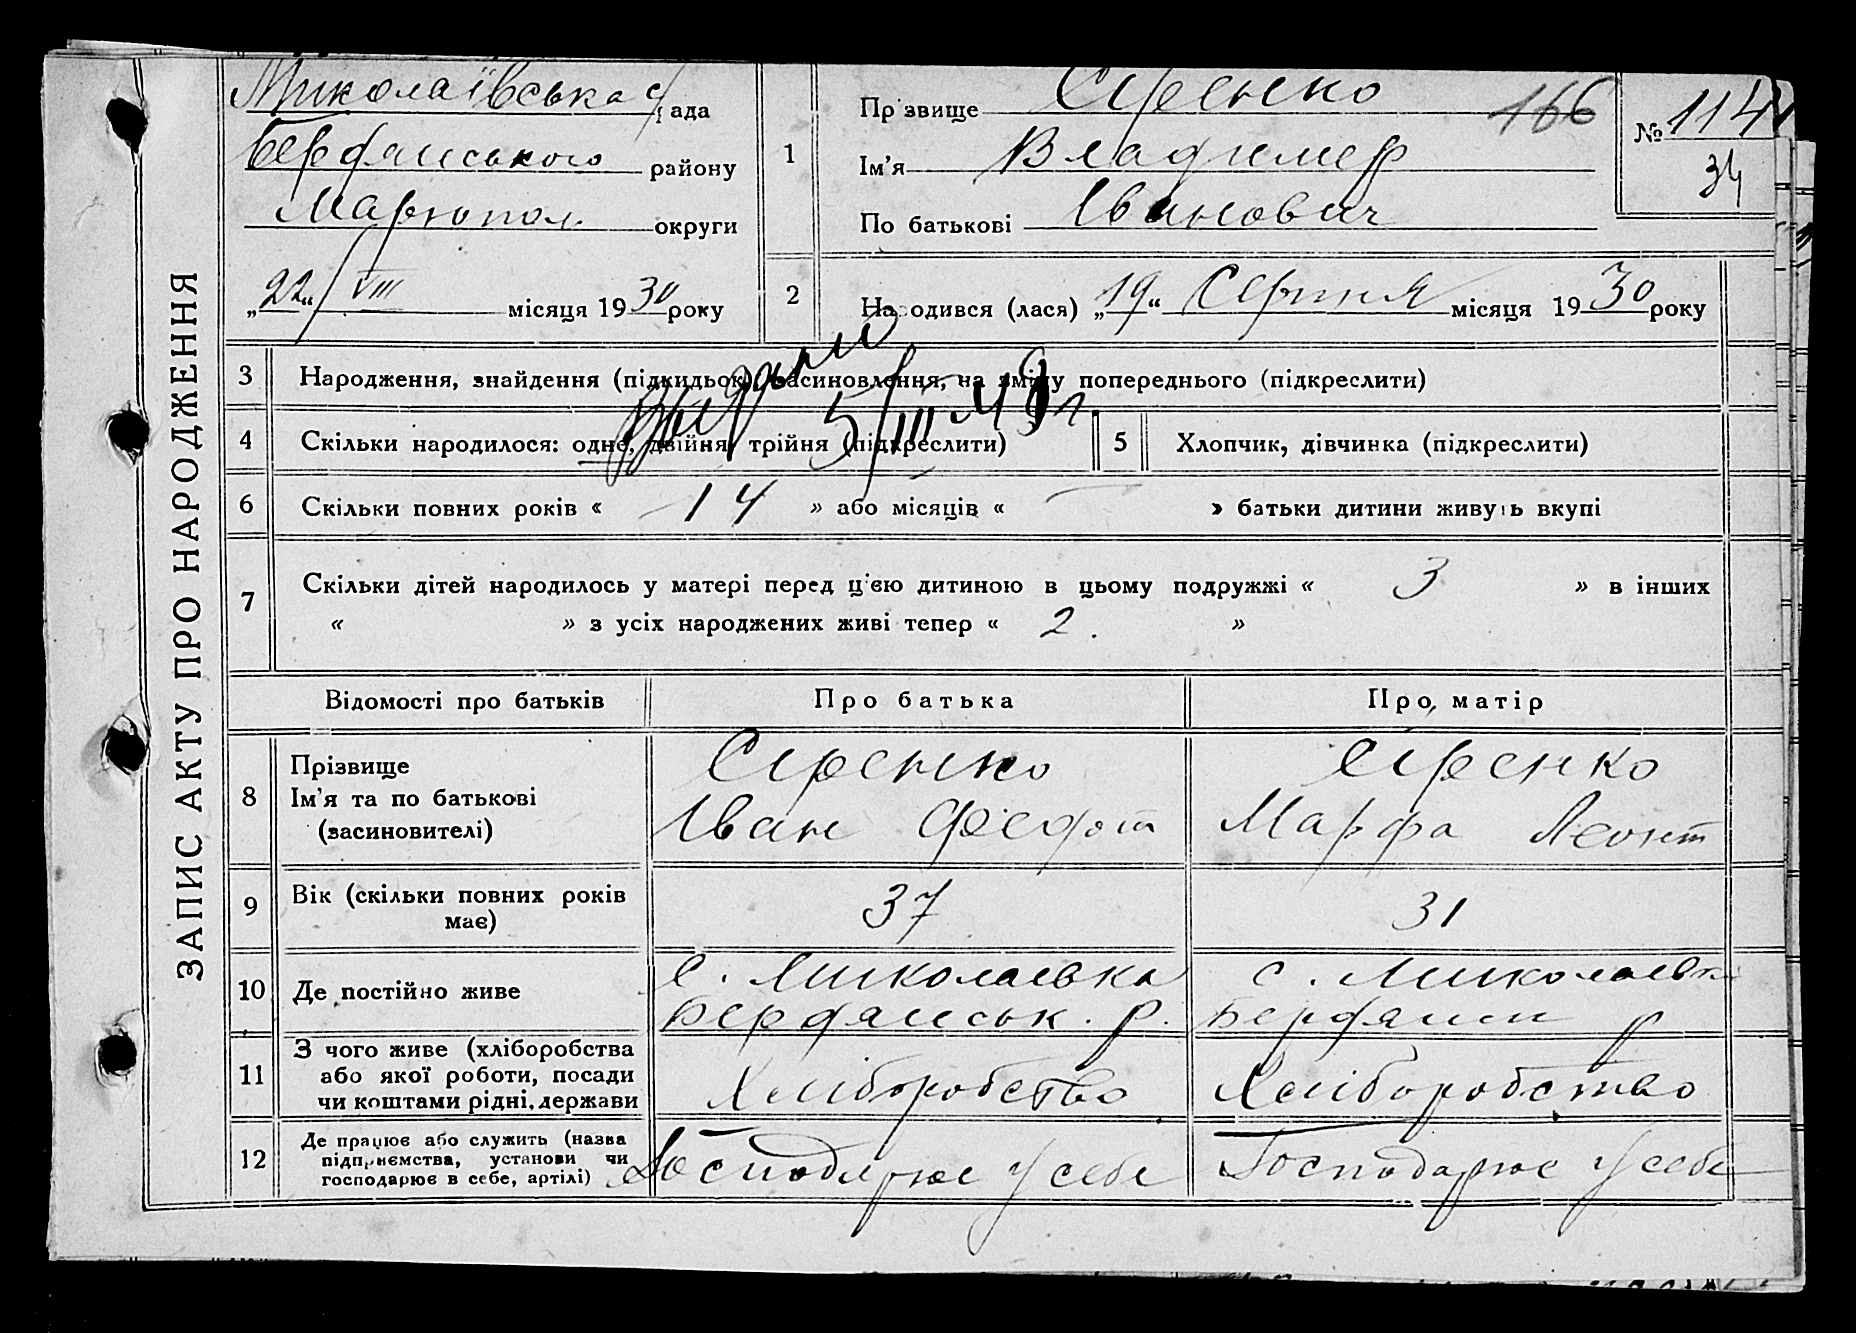 ЗАПИС АКТУ ПРО НАРОДЖЕННЯ
Миколаївська с/рада
Бердянського району
Маріюпол. округи
„22“ VIII місяця 1930 року
1
Прізвище Сіренко
Ім'я Владимер
По батькові Іванович
166
№ 114
34
2
Народився (лася) „19“ Серпня місяця 1930 року
3 Народження, знайдення (підкидьок) засиновлення, на зміну попереднього (підкреслити)
5/III
4 Скільки народилося: одне, двійня, трійня (підкреслити)
5 Хлопчик, дівчинка (підкреслити)
6 Скільки повних років « 14 » або місяців « — » батьки дитини живуть вкупі
7 Скільки дітей народилось у матері перед цією дитиною в цьому подружжі « 3 » в інших
« » з усіх народжених живі тепер « 2. »
Відомості про батьків Про батька Про матір
8 Прізвище
Ім'я та по батькові
(засиновителі)
Сіренко
Іван Федот
Сіренко
Марфа Леонт
9 Вік (скільки повних років
має)
37
31
10 Де постійно живе
с. Миколаевка
Бердянськ. р.
с. Миколаевк
Бердянськ р
11 З чого живе (хліборобства
або якої роботи, посади
чи коштами рідні, держави
Хліборобство
Хліборобство
12 Де працює або служить (назва
підприємства, установи чи
господарює в себе, артілі)
Господарює у себе
Господарює у себе